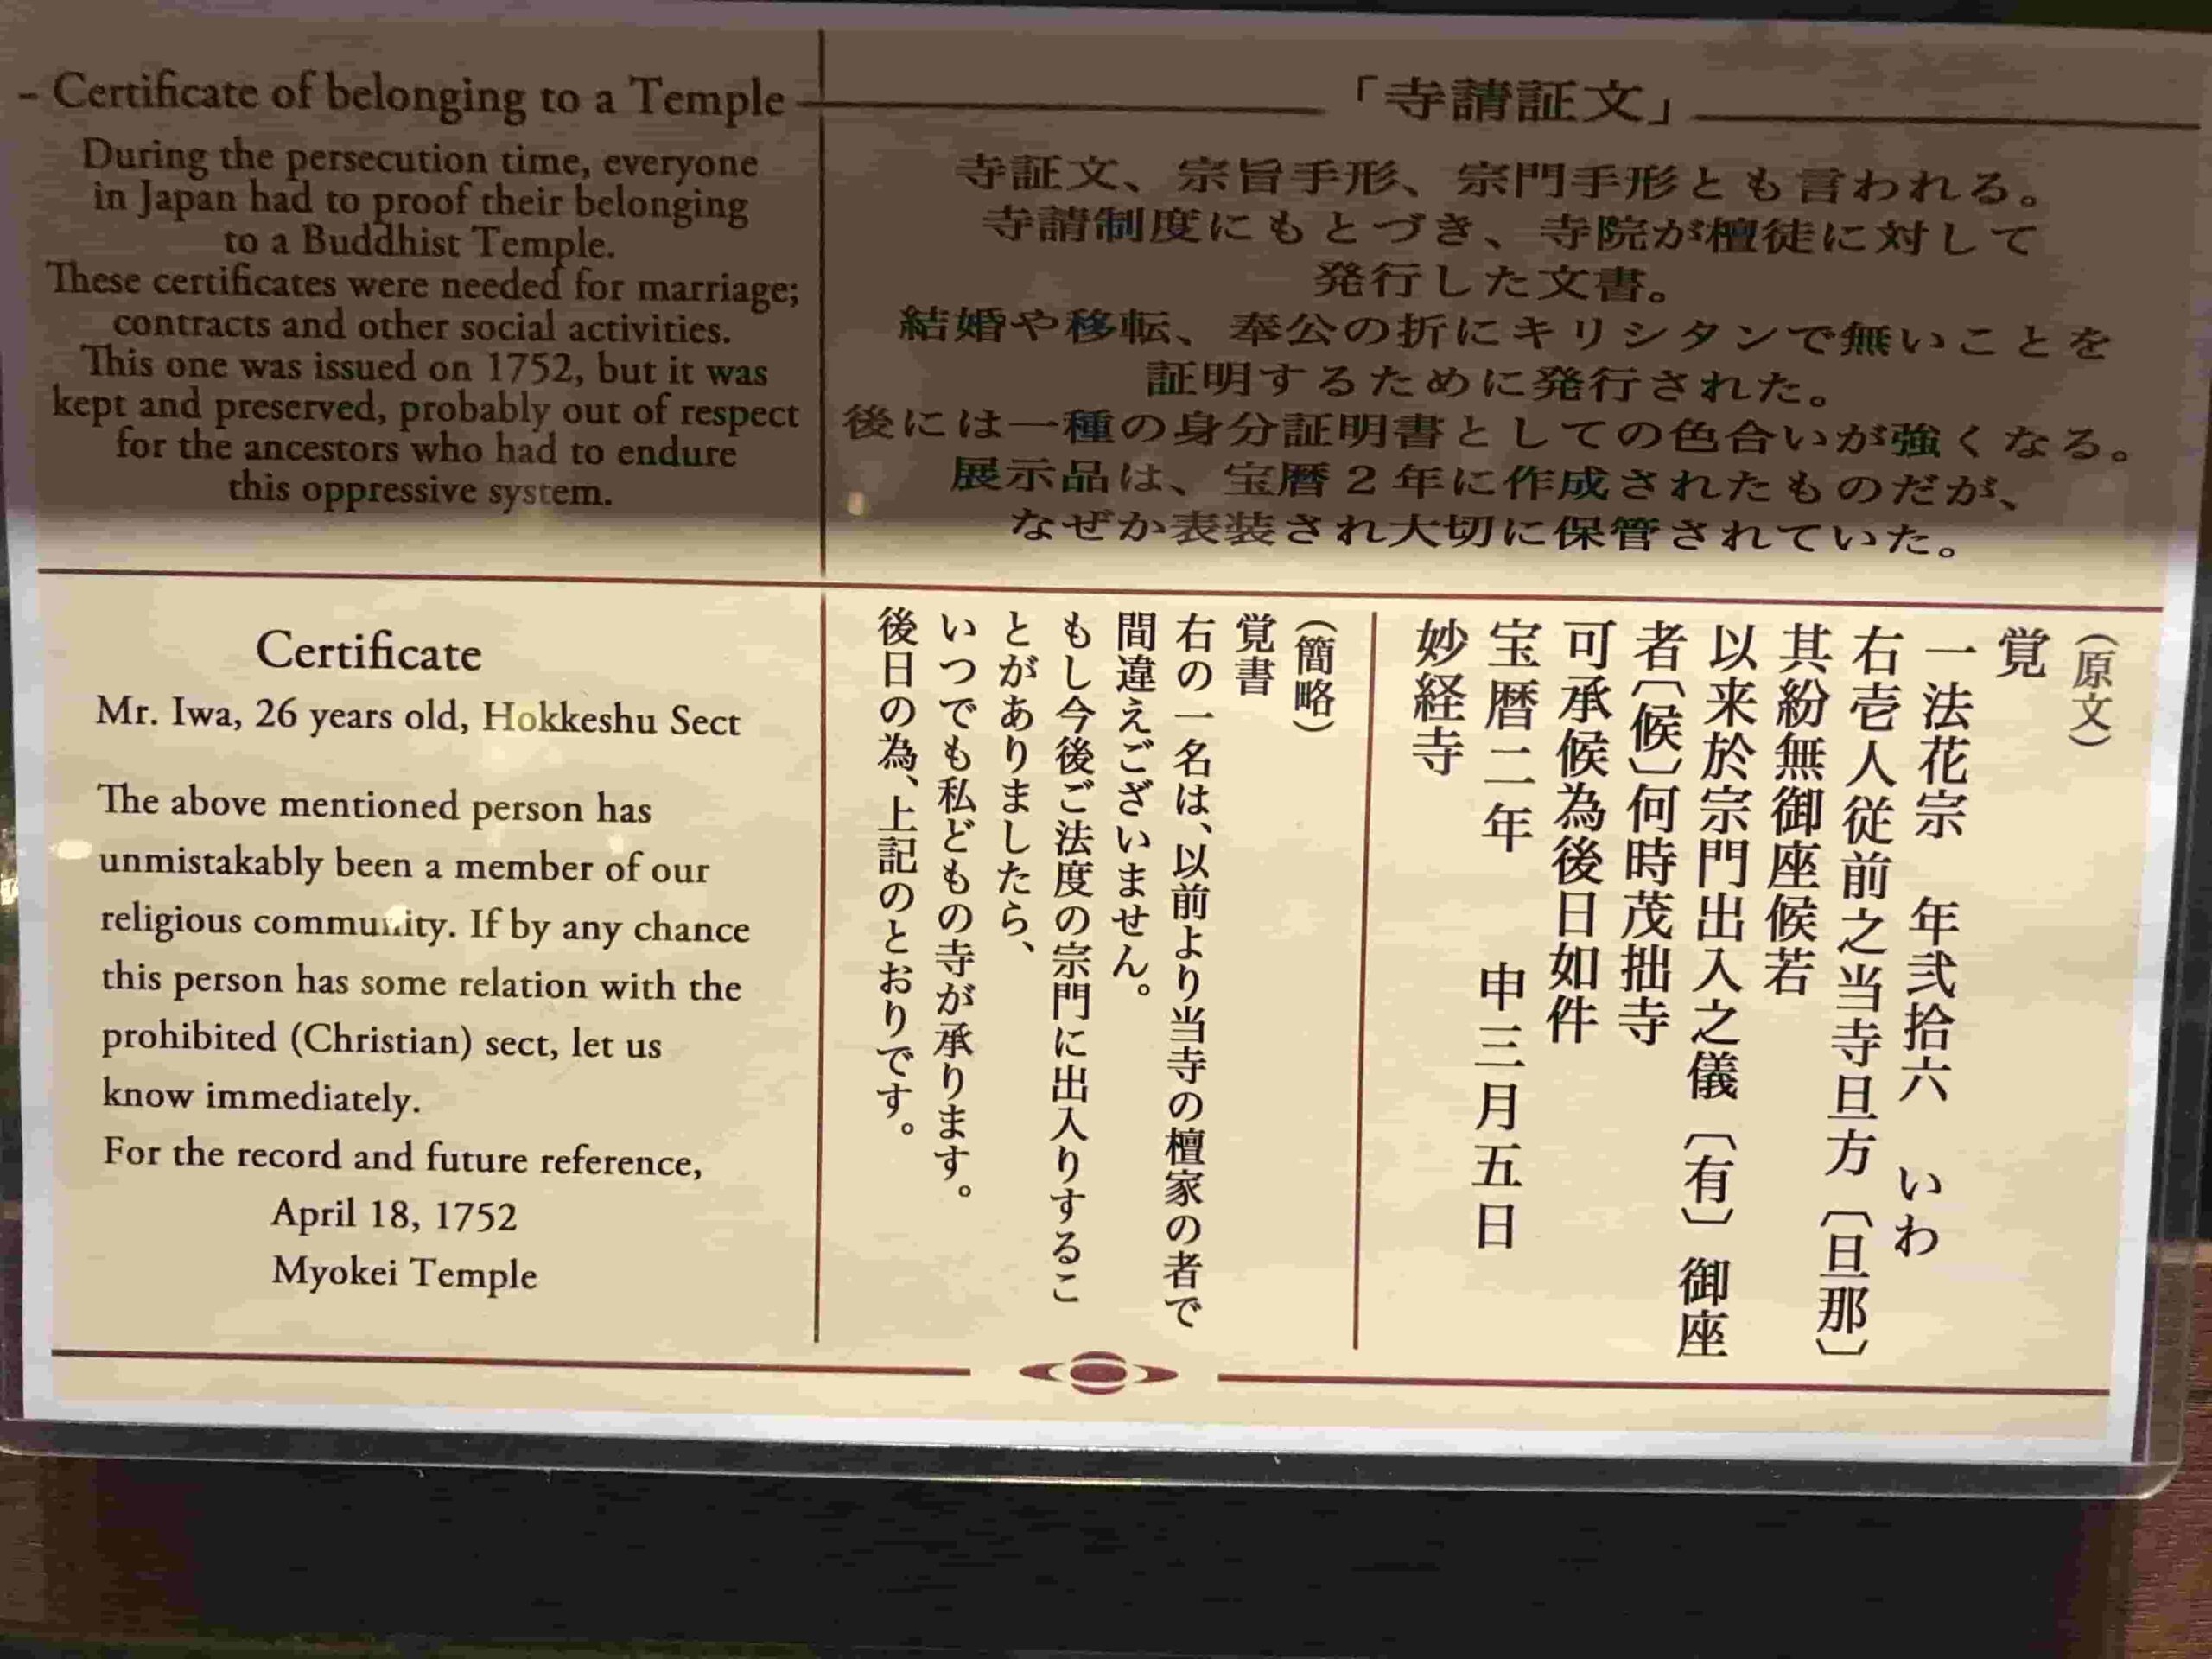 - Certificate of belonging to a Temple
During the persecution time, everyone
in Japan had to proof their belonging
to a Buddhist Temple.
These certificates were needed for marriage;
contracts and other social activities.
This one was issued on 1752, but it was
kept and preserved, probably out of respect
for the ancestors who had to endure
this oppressive system.
「寺請証文」
寺証文、宗旨手形、宗門手形とも言われる。
寺請制度にもとづき、寺院が檀徒に対して
発行した文書。
結婚や移転、奉公の折にキリシタンで無いことを
証明するために発行された。
後には一種の身分証明書としての色合いが強くなる。
展示品は、宝暦2年に作成されたものだが、
なぜか表装され大切に保管されていた。
Certificate
Mr. Iwa, 26 years old, Hokkeshu Sect
The above mentioned person has
unmistakably been a member of our
religious community. If by any chance
this person has some relation with the
prohibited (Christian) sect, let us
know immediately.
For the record and future reference,
April 18, 1752
Myokei Temple
（原文）
覚
一法花宗 年弐拾六 いわ
右壱人従前之当寺旦方〔旦那〕
其紛無御座候若
以来於宗門出入之儀〔有〕御座
者〔候〕何時茂拙寺
可承候為後日如件
宝暦二年 申三月五日
妙経寺
（簡略）
覚書
右の一名は、以前より当寺の檀家の者で
間違えございません。
もし今後ご法度の宗門に出入りするこ
とがありましたら、
いつでも私どもの寺が承ります。
後日の為、上記のとおりです。